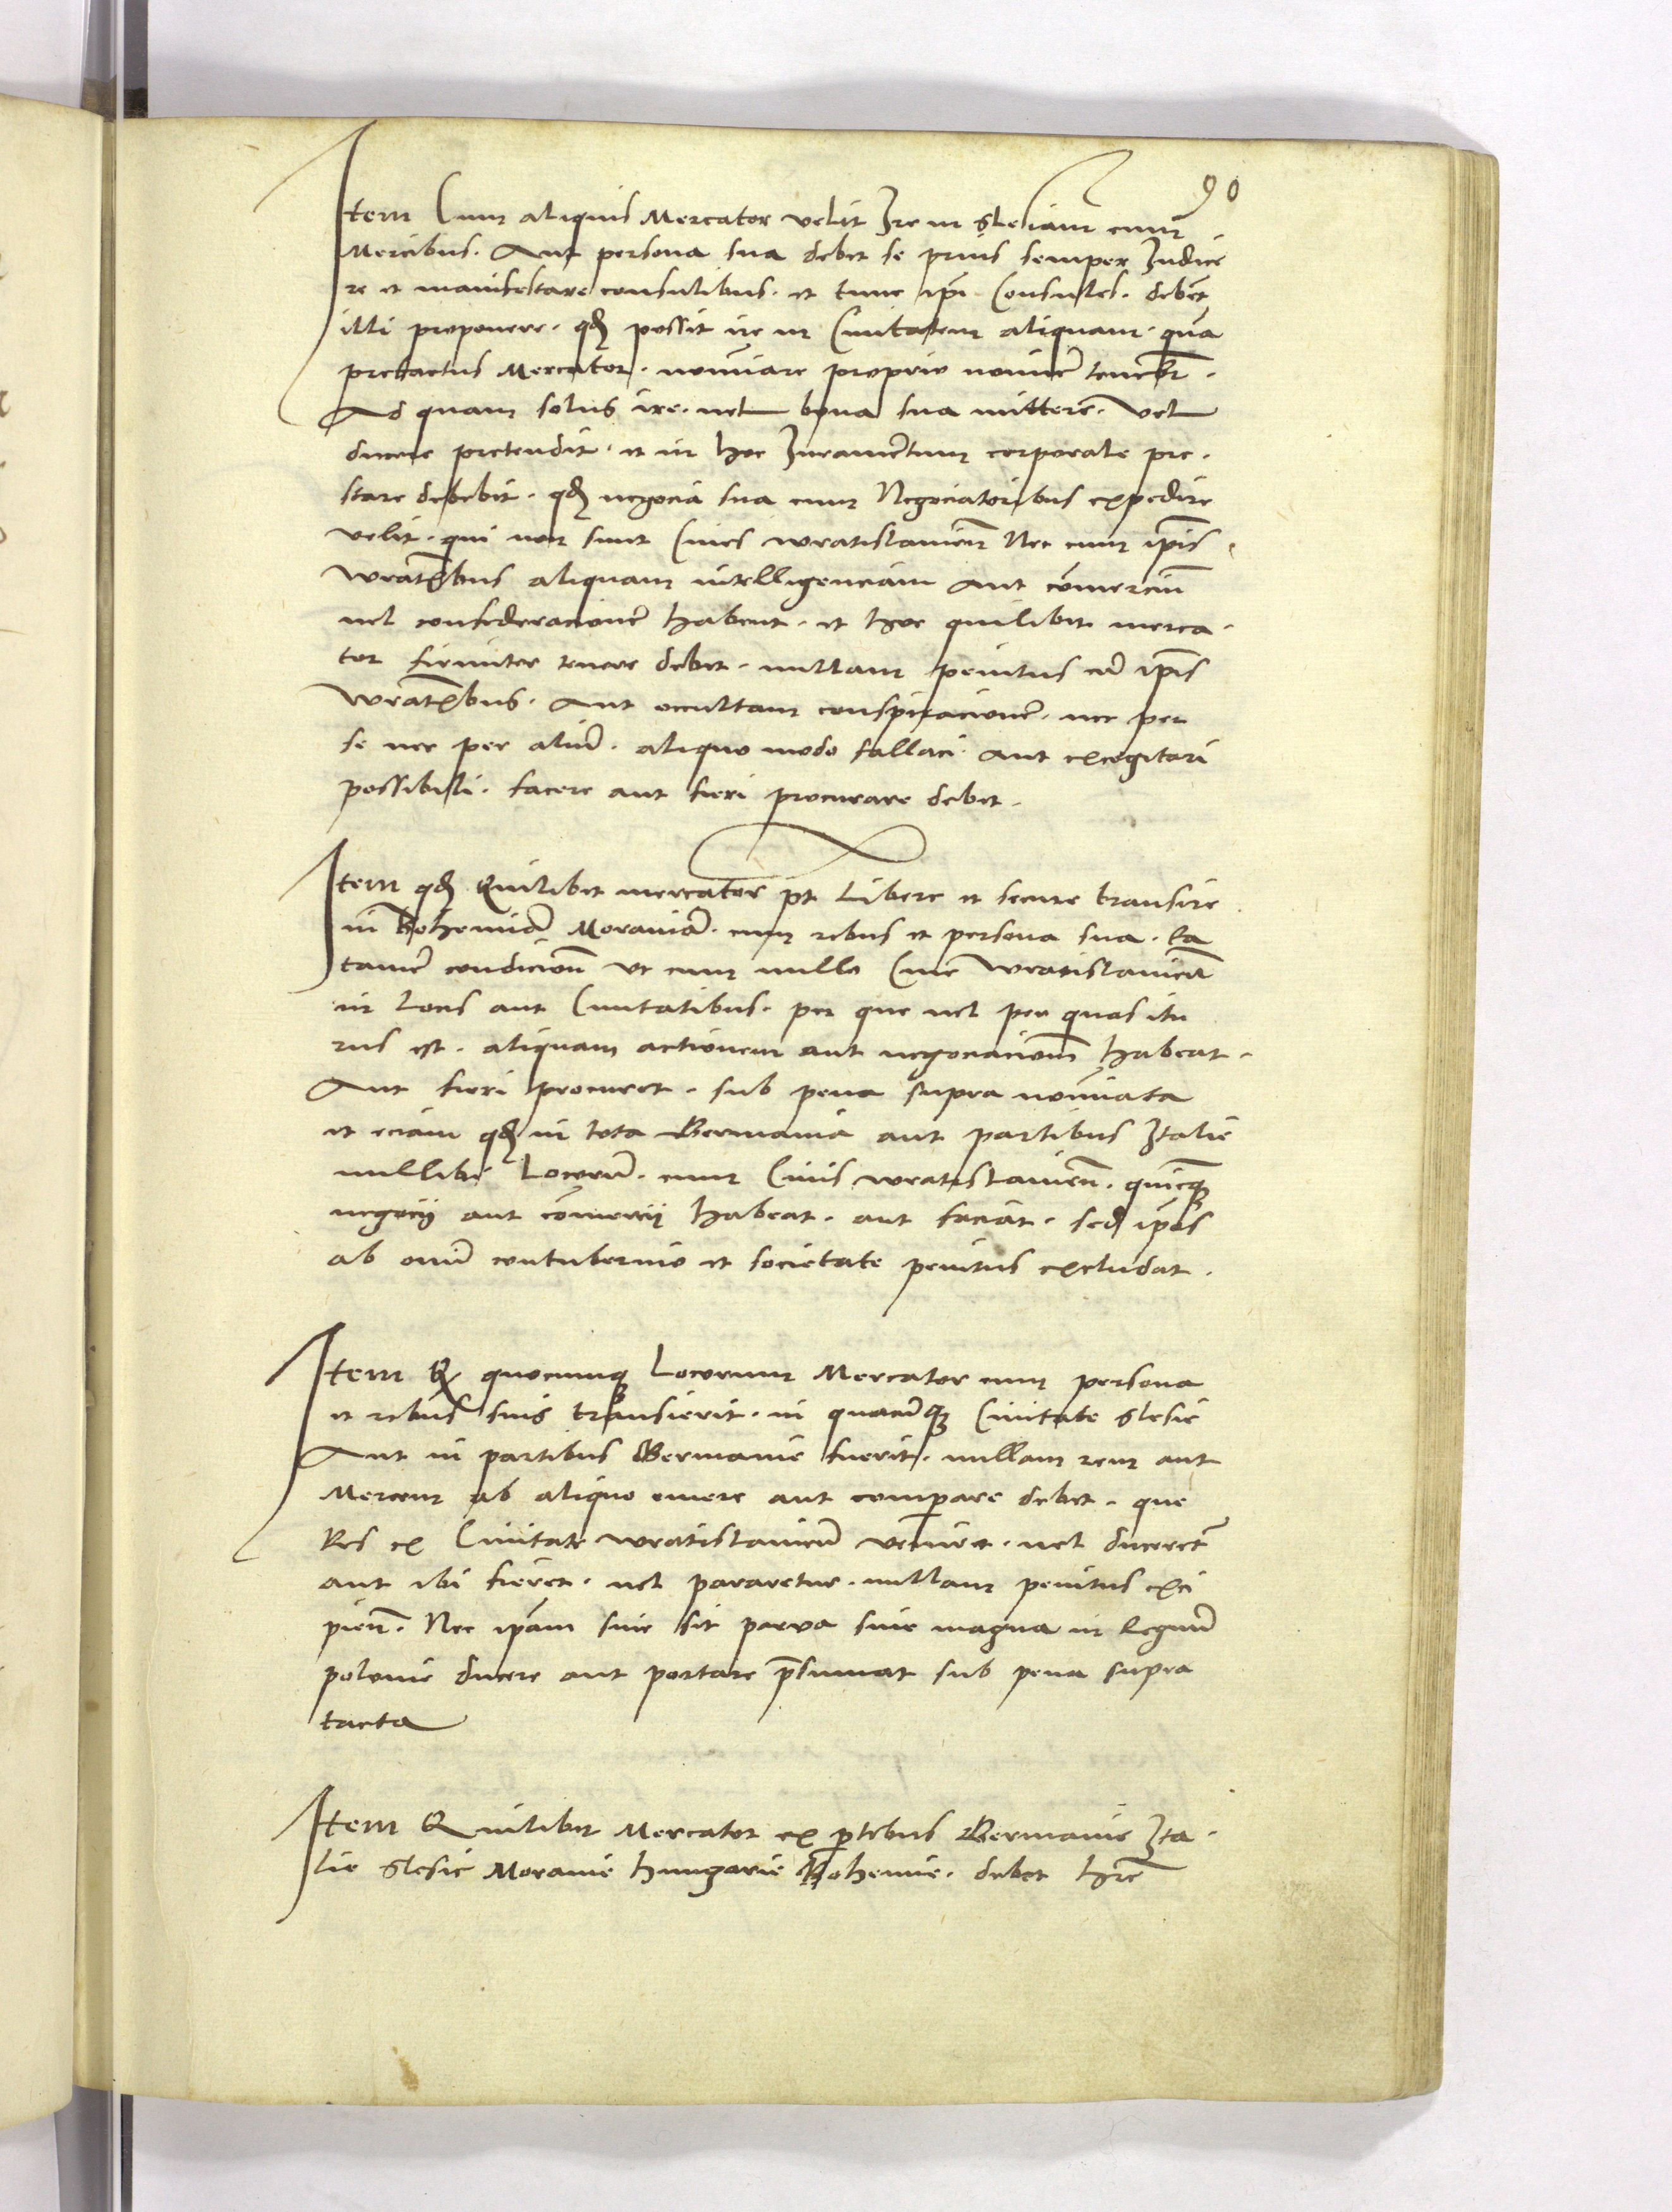 90
Item Cum aliquis Mercator velit Ire in Slesiam cum
Mercibus. Aut persona sua debet se prius semper Indice
re et manifestare consulibus. et tunc ip̄i Consules. debēt
illi proponere. qđ possit ire in Ciuitatem aliquam. quā
pretactus Mercator. nomīare proprio nomīe tenebr̄.
Ad quam solus ire. uel bona sua mittere. vel
ducere pretendit. et in hoc Iuramentum corporale pre.
stare debebit. qđ negocia sua cum Negociatoribus expedire
velit. qui non sunt Ciues wratislauien̄ Nec cum ip̄is
wratn̄bus aliquam intelligenciam aut cōmerciū
uel confederacionē habent. et hoc quilibet merca.
tor firmiter tenere debet. nullam penitus cū ip̄is
wratn̄bus. Aut occultam conspiracionē. nec per
se nec per aliū. aliquo modo fallaci aut excogitari
possibili. facere aut fieri procurare debet.
Item qđ Quilibet mercator pt Libere et secure transire
in Bohemiā Morauiā. cum rebus et persona sua. Ea
tamē condicion̄ vt cum nullo Ciue wratislauien̄
in Locis aut Ciuitatibus. per que uel per quas itu
rus est. aliquam actionem aut negociacion̄ habeat.
Aut fieri procuret. sub pena supra nomīata
et eciam qđ in tota Germania aut partibus Italie
nullibi Locorū. cum Ciuis wratislauien̄. quicq̄
negocij aut cōmercij habeat. aut faciat. sed ip̄os
ab omī contubernio et societate penitus excludat.
Item Q quocumq̄ Locorum Mercator cum persona
et rebus suis transierit. in quacūq̄ Ciuitate Slesie
Aut in partibus Germanie fuerit. nullam rem aut
Mercem ab aliquo emere aut comparare debet. que
Res ex Ciuitate wratislauien̄ veniret. uel duceretr̄
aut ibi fieret. uel pararetur. nullam penitus exci
pien̄. Nec ip̄am siue sit parva siue magna in Regnū
polonie ducere aut portare p̄sumat sub pena supra
tacta
Item Quilibet Mercator ex p̄tibus Germanie Ita.
lie Slesie Morauie hungarie Bohemie. debet hr̄e